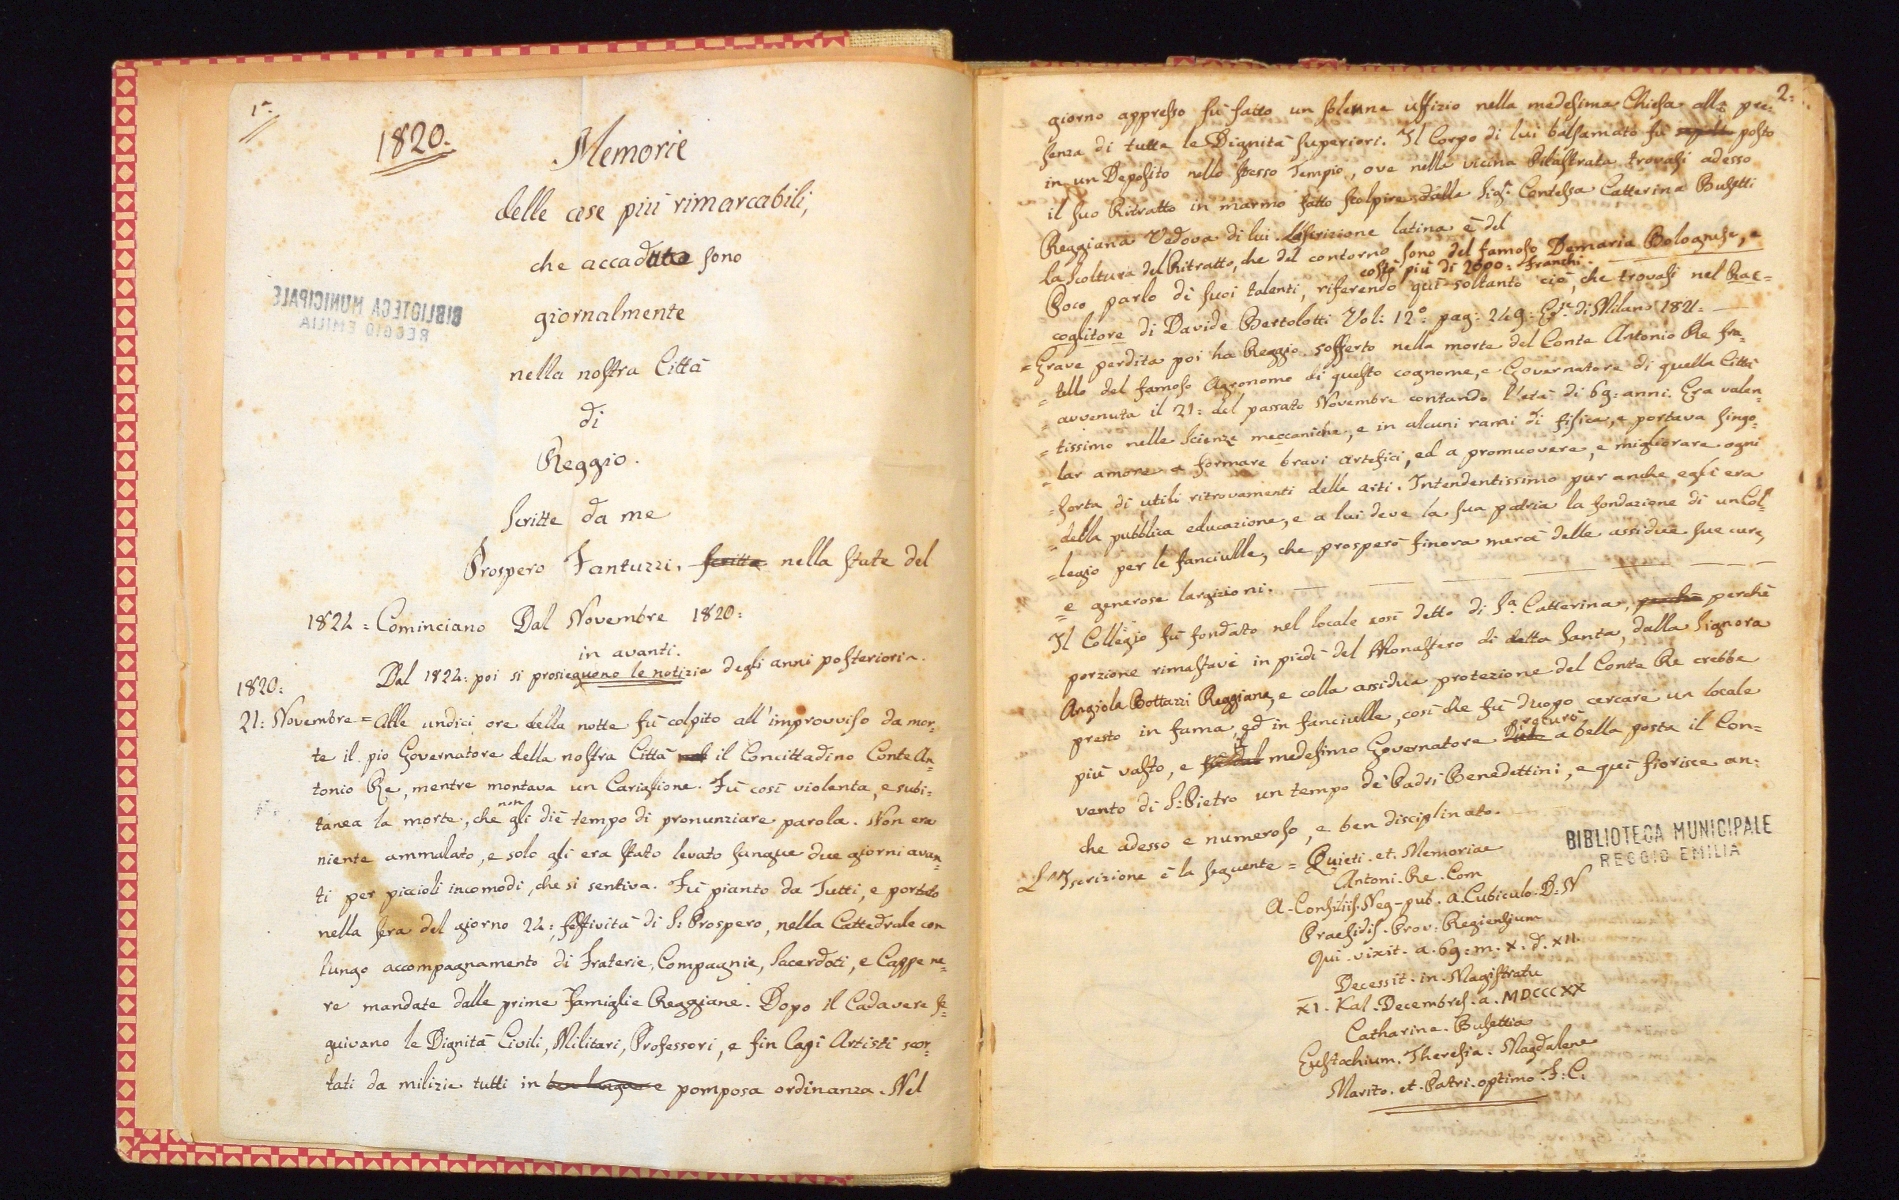 1.
1820.
Memorie
delle cose più rimarcabili,
che accadute sono
giornalmente
nella nostra Città
di
Reggio.
Scritte da me
Prospero Fantuzzi, scritte nella state del
1824 = Cominciano Dal Novembre 1820:
in avanti.
Dal 1824: poi si prosieguono le notizie degli anni posteriori.
1820:
21: Novembre = Alle undici ore della notte fù colpito all'improvviso da mor-
te il pio Governatore della nostra Città il Concittadino Conte An-
tonio Re, mentre montava un Cariglione. Fù così violenta, e subi-
tanea la morte, che non gli diè tempo di pronunziare parola. Non era
niente ammalato, e solo gli era stato levato sangue due giorni avan-
ti per piccioli incomodi, che si sentiva. Fù pianto da Tutti, e portato
nella sera del giorno 24:, festività di S: Prospero, nella Cattedrale con
lungo accompagnamento di Fraterie, Compagnie, Sacerdoti, e Cappe ne-
re mandate dalle prime Famiglie Reggiane. Dopo il Cadavere se-
guivano le Dignità Civili, Militari, Professori, e fin Cagi Artisti scor-
tati da milizie tutti in pomposa ordinanza. Nel
BIBLIOTECA MUNICIPALE
REGGIO EMILIA
2:
giorno appresso fù fatto un solenne uffizio nella medesima Chiesa alla pre-
senza di tutte le Dignità superiori. Il Corpo di lui balsamato fù posto
in un Deposito nello stesso Tempio, ove nella vicina Pilastrata trovasi adesso
il suo Ritratto in marmo fatto scolpire dalla Sig.ra Contessa Catterina Busetti
Reggiana Vedova di lui. L'Iscrizione latina è del
la scoltura del Ritratto, che del contorno sono del famoso Demaria Bolognese, e
costò più di 2600: Franchi.
Poco parlo di suoi talenti, riferendo quì soltanto ciò, che trovasi nel Rac-
coglitore di Davide Bertolotti Vol: 12° pag: 249: Ed.e di Milano 1821.
= Grave perdita poi ha Reggio sofferto nella morte del Conte Antonio Re fra-
= tello del famoso Agronomo di questo cognome, e Governatore di quella Città
= avvenuta il 21: del passato Novembre contando l'età di 69: anni. Era valen-
= tissimo nelle scienze meccaniche, e in alcuni rami di fisica, e portava singo-
= lar amore a formare bravi artefici, ed a promuovere, e migliorare ogni
= sorta di utili ritrovamenti delle arti. Intendentissimo pur anche egli era
= della pubblica educazione, e a lui deve la sua patria la fondazione di un Col-
= legio per le fanciulle, che prosperò finora mercè delle assidue sue cure,
= e generose largizioni.
Il Collegio fù fondato nel locale così detto di S.a Catterina, perchè perchè
porzione rimastavi in piedi del Monastero di detta Santa, dalla Signora
Angiola Bottazzi Reggiana, e colla assidua protezione del Conte Re crebbe
presto in fama, ed in fanciulle, così che fù d'uopo cercare un locale
più vasto, e il medesimo Governatore a bella posta il Con-
vento di S: Pietro un tempo de' Padri Benedettini, e quì fiorisce an-
che adesso e numeroso, e ben disciplinato.
L'Iscrizione è la seguente = Quieti. et. Memoriae
Antoni. Re. Com
A. Consiliis. Neg. pub. a. Cubiculo. D. N
Praesidis. Prov. Regiensium
Qui. vixit. a. 69. m. X. d. XII.
Decessit. in. Magistratu
XI. Kal. Decembres. a. MDCCCXX
Catharina. Busettia
Eustachium. Theresia. Magdalene
Marito. et. Patri. optimo. F. C.
BIBLIOTECA MUNICIPALE
REGGIO EMILIA